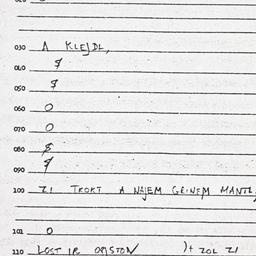 030 A KLEJDL,
040 $
050 $
060 O
070 O
080 $
090 $
100 ZI TROKT A NAJEM GEINEM MANTL,
101 O
110 LOST IR ZOL ZI